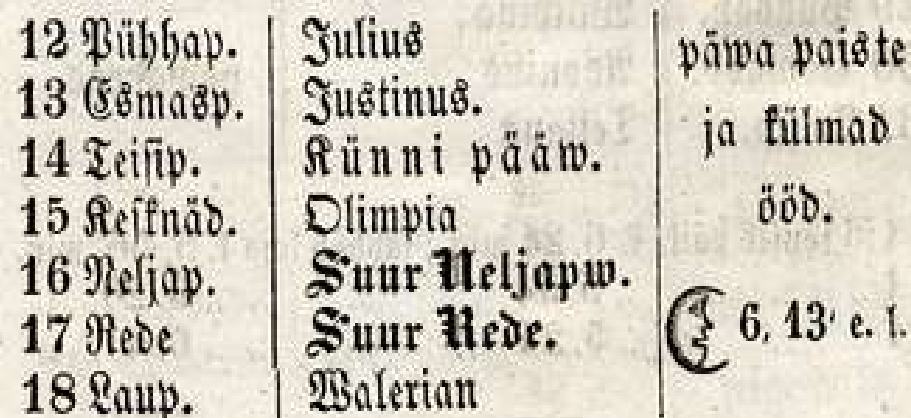 12 Pühhap. Julius päwa paiste
13 Esmasp. Justinus. ja külmad
14 Teisip. Künni pääw.
15 Kesknäd. Olimpia ööd.
16 Neljap. Suur Neljapw.
17 Rede Suur Rede. 6, 13' e. l.
18 Laup. Walerian